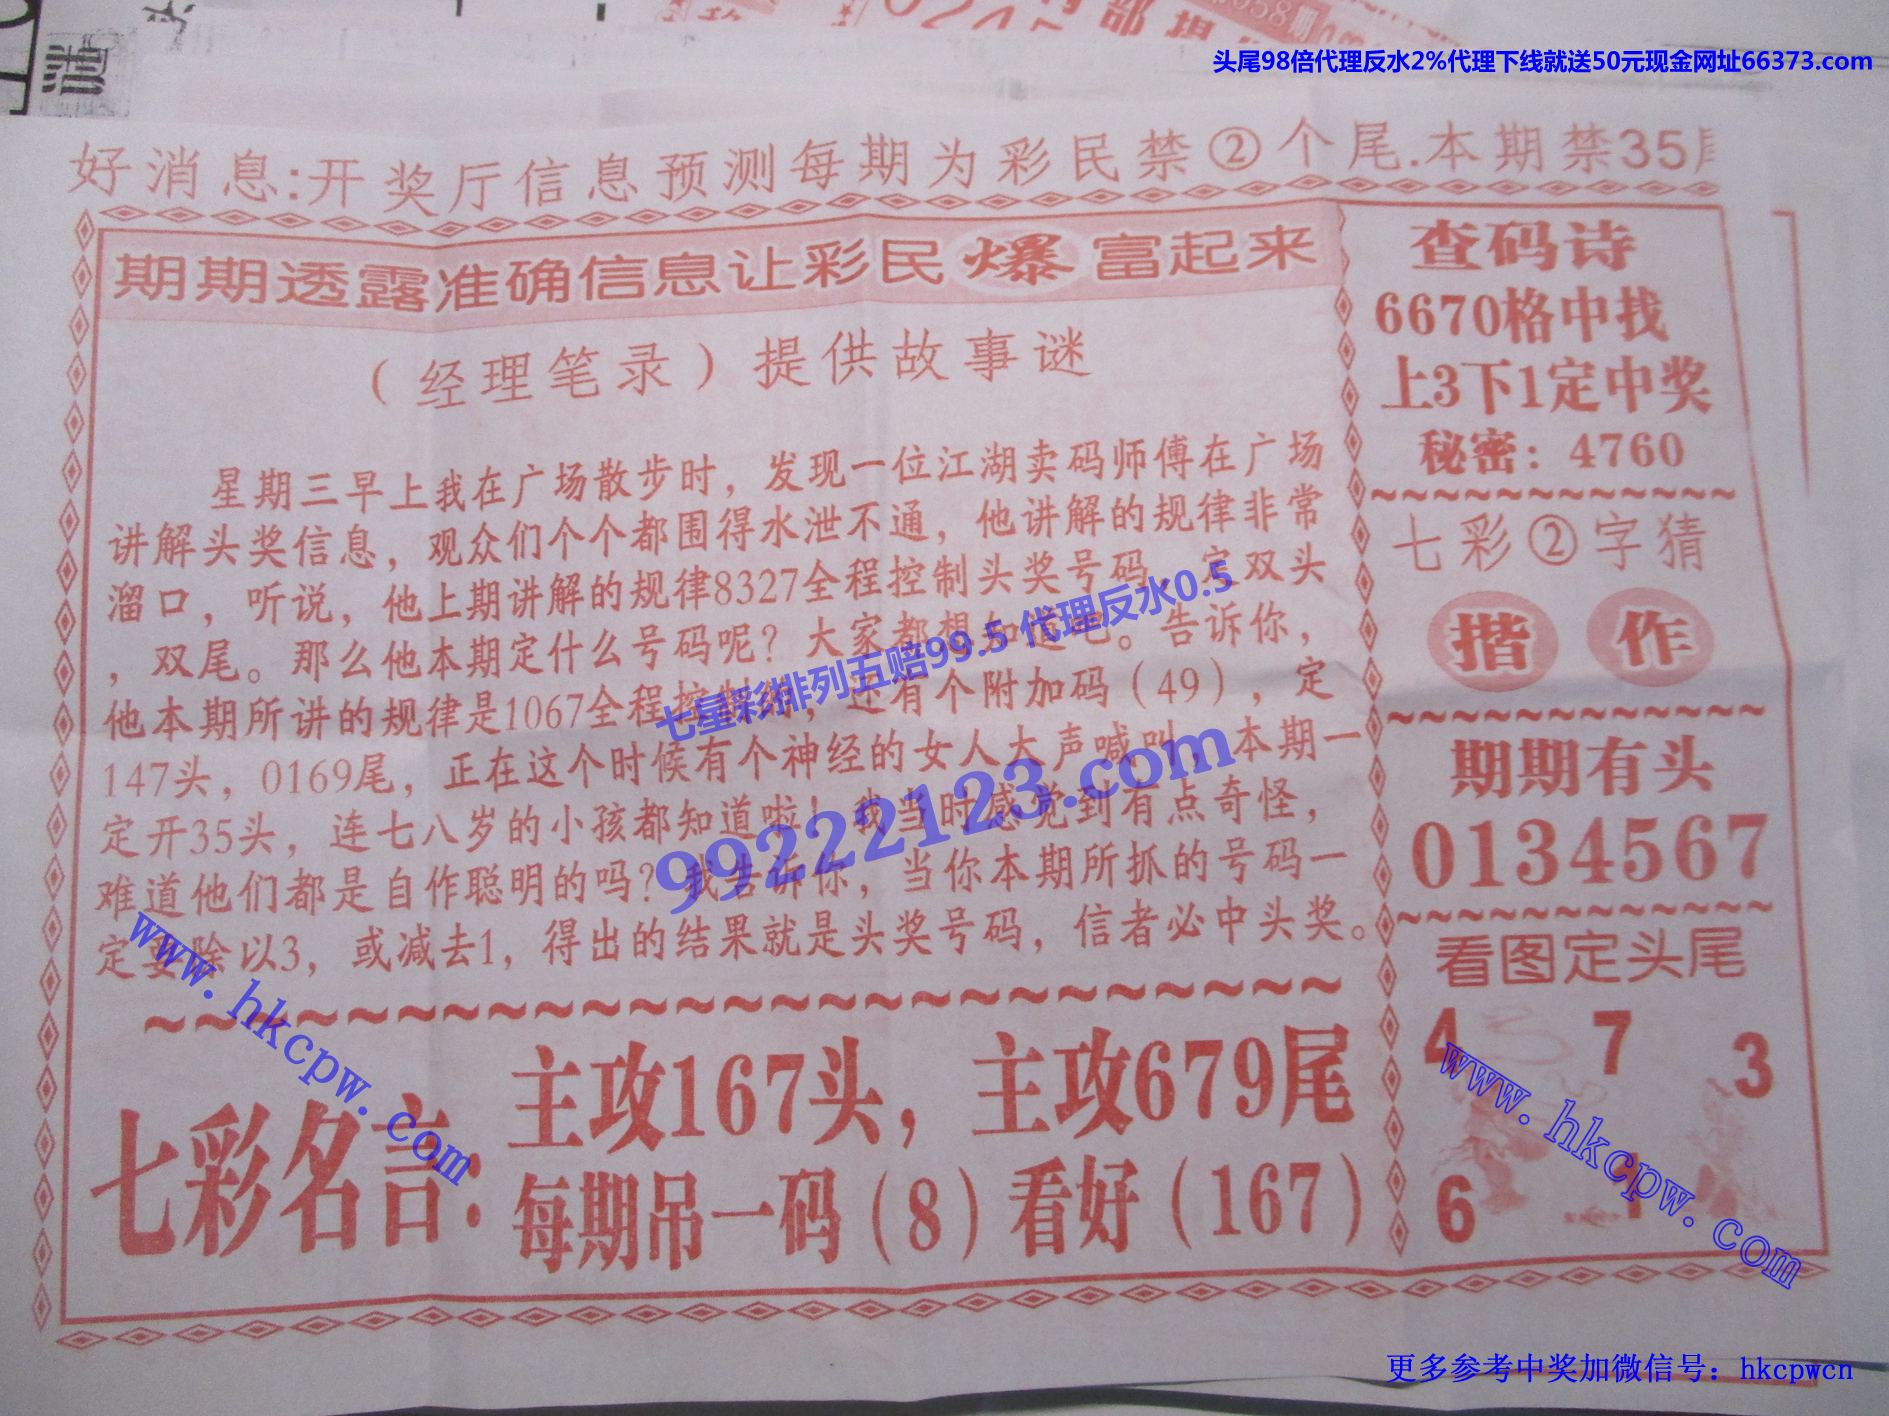 头尾98倍代理反水2%代理下线就送50元现金网址66373.com
好消息:开奖厅信息预测每期为彩民禁②个尾.本期禁35尾
期期透露准确信息让彩民爆富起来
（经理笔录）提供故事谜
星期三早上我在广场散步时，发现一位江湖卖码师傅在广场
讲解头奖信息，观众们个个都围得水泄不通，他讲解的规律非常
溜口，听说，他上期讲解的规律8327全程控制头奖号码，定双头
，双尾。那么他本期定什么号码呢？大家都想知道吧。告诉你，
他本期所讲的规律是1067全程控制的，还有个附加码（49），定
147头，0169尾，正在这个时候有个神经的女人大声喊叫，本期一
定开35头，连七八岁的小孩都知道啦！我当时感觉到有点奇怪，
难道他们都是自作聪明的吗？我告诉你，当你本期所抓的号码一
定要除以3，或减去1，得出的结果就是头奖号码，信者必中头奖。
七星彩排列五赔99.5 代理反水0.5
99222123.com
www.hkcpw.com
七彩名言:
主攻167头，主攻679尾
每期吊一码（8）看好（167）
查码诗
6670格中找
上3下1定中奖
秘密：4760
七彩②字猜
揩 作
期期有头
0134567
看图定头尾
4 7 3
6 1
www.hkcpw.com
更多参考中奖加微信号：hkcpwcn